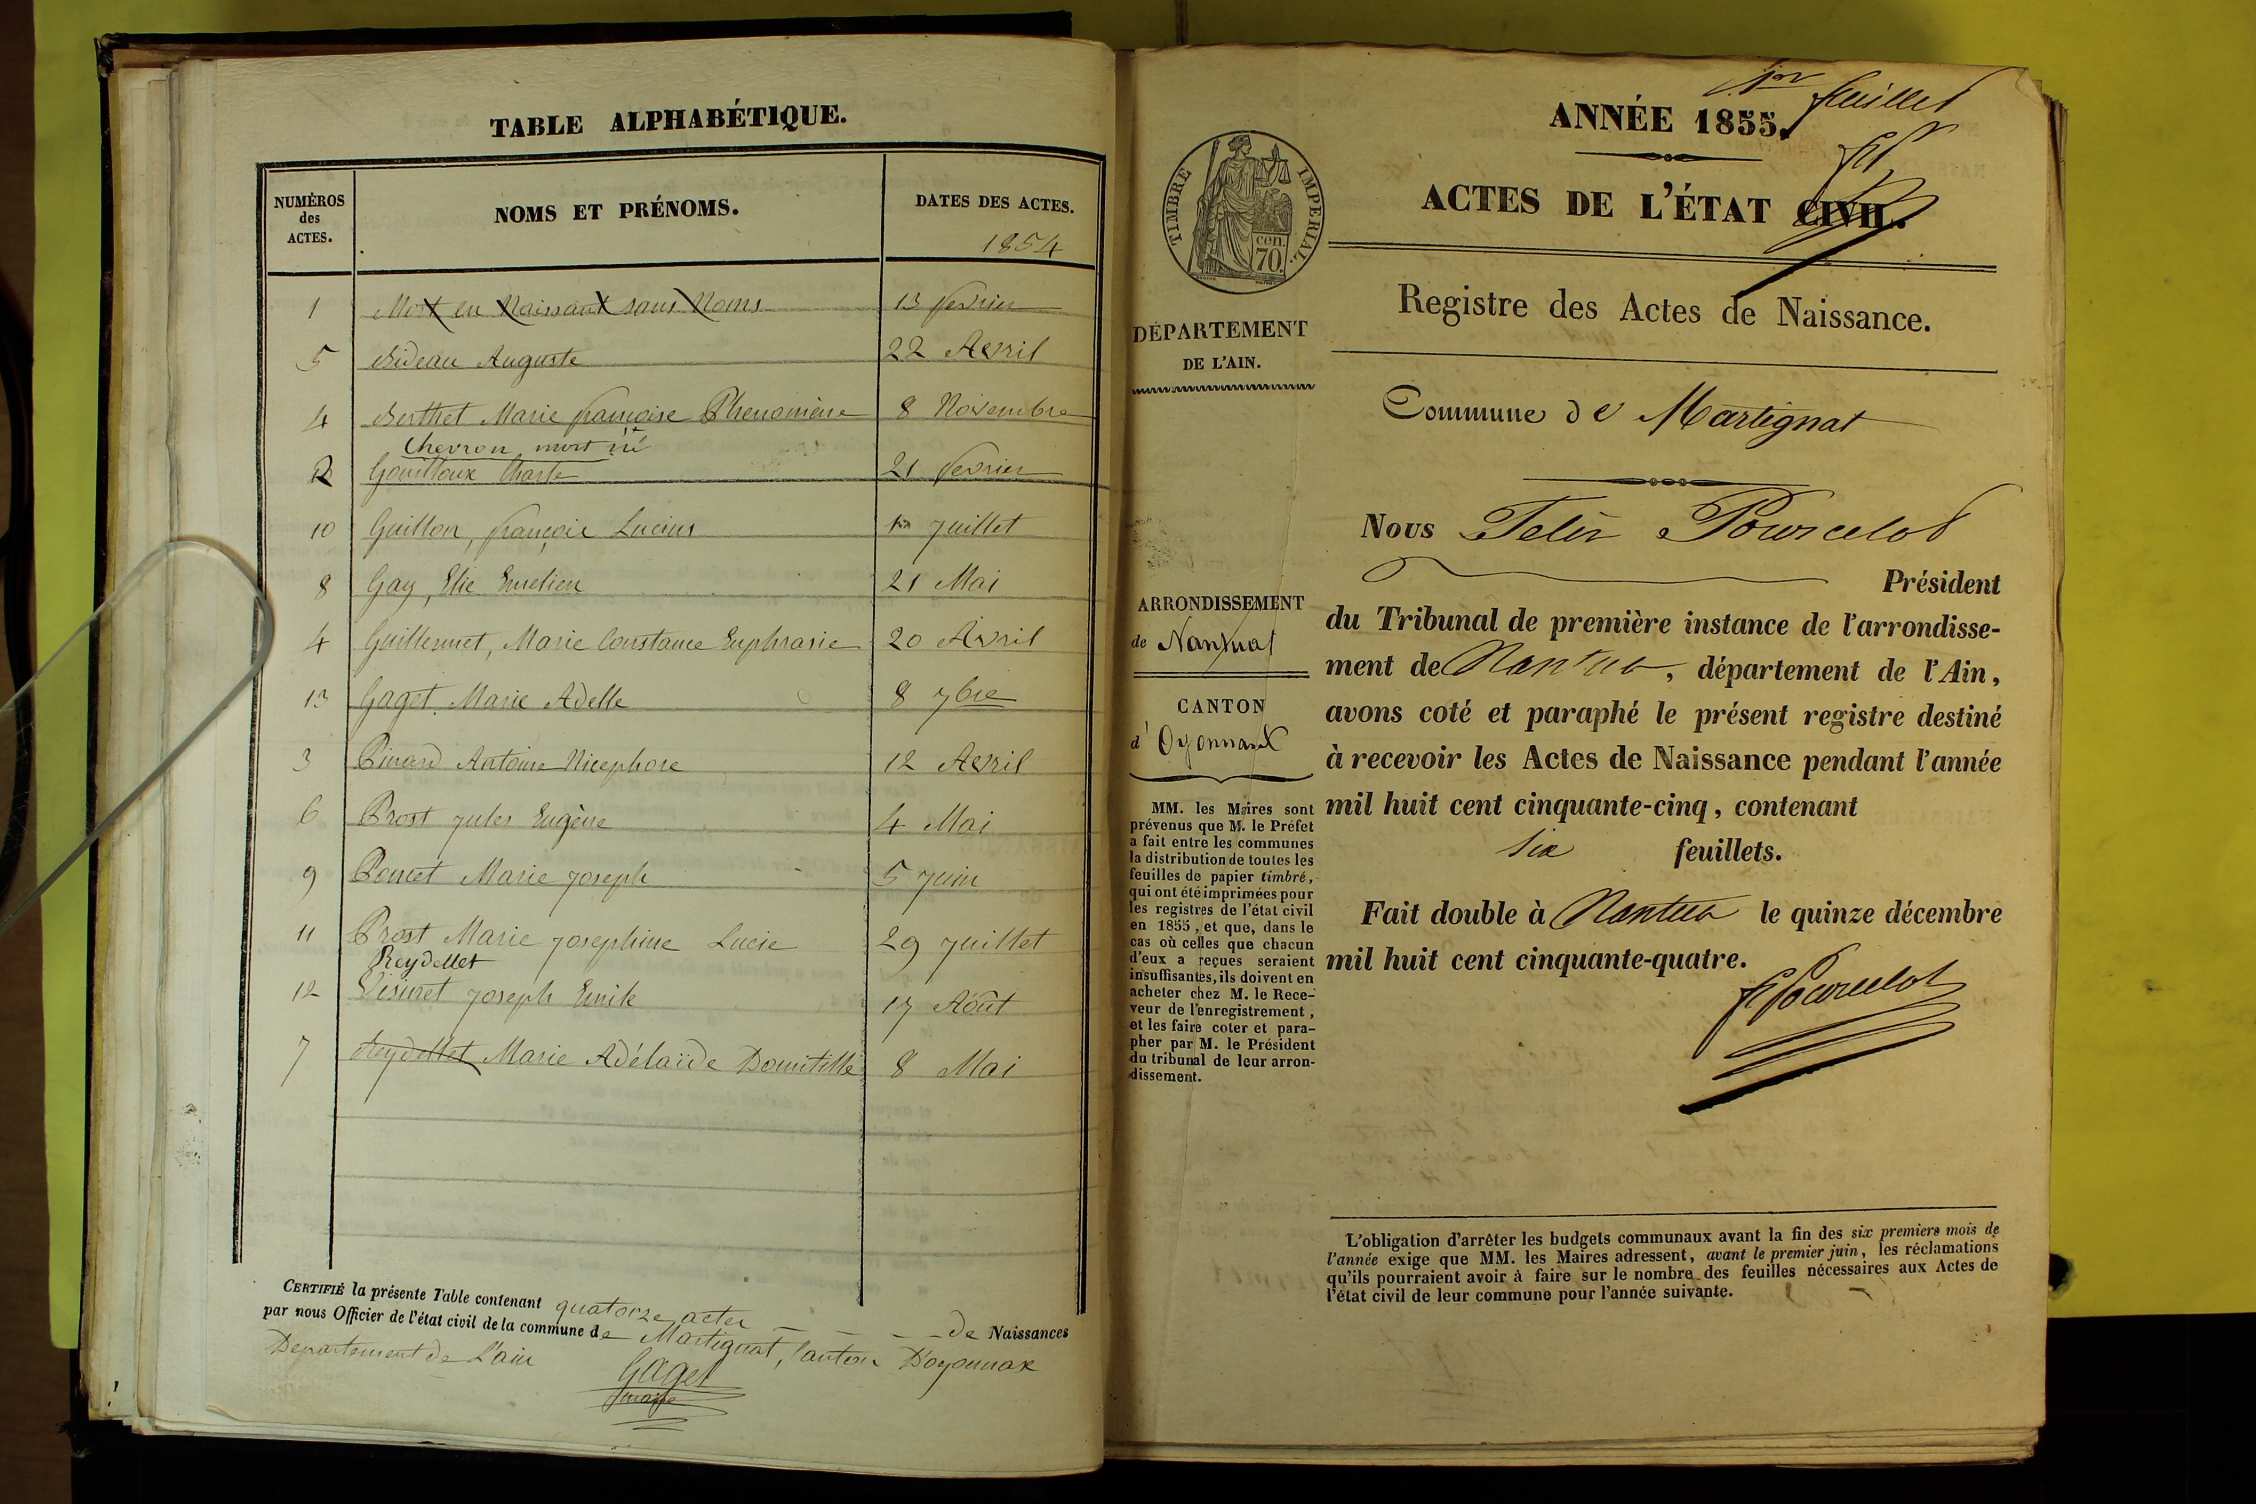 TABLE ALPHABÉTIQUE.
NUMÉROS
des
ACTES.
NOMS ET PRÉNOMS.
DATES DES ACTES.
1854
1 Mort en Naissant sans Noms 13 fevrier
5 Bideau Auguste 22 Avril
4 Berthet Marie françoise 8 Novembre
Chevron mort né
2 Gouilloux 21 fevrier
10 Guillon, françois Lucius Juillet
8 Gay, Elie 21 Mai
4 Guillermet, Marie Constance Euphrasie 20 Avril
13 Gaget Marie Adelle 8 7bre
3 Pinard Antoine Nicephore 12 Avril
6 Prost Jules Eugène 4 Mai
9 Poncet Marie Joseph 5 Juin
11 Prost Marie Josephine Lucie 29 Juillet
Reydellet
12 Joseph Emile 17 Août
7 Reydellet Marie Adélaïde Domitille 8 Mai
CERTIFIÉ la présente Table contenant quatorze actes de Naissances
par nous Officier de l'état civil de la commune de Martignat, Canton D'oyonnax
Departement de L'ain
Gaget
maire
1er feuillet
ANNÉE 1855.
ACTES DE L'ÉTAT CIVIL.
TIMBRE IMPERIAL.
cen.
70.
Registre des Actes de Naissance.
DÉPARTEMENT
DE L'AIN.
Commune de Martignat
Nous Felix Pourcelot
Président
du Tribunal de première instance de l'arrondisse-
ment de Nantua, département de l'Ain,
avons coté et paraphé le présent registre destiné
à recevoir les Actes de Naissance pendant l'année
mil huit cent cinquante-cinq, contenant
six feuillets.
Fait double à Nantua le quinze décembre
mil huit cent cinquante-quatre.
F Pourcelot
ARRONDISSEMENT
de Nantua
CANTON
d'Oyonnax
MM. les Maires sont
prévenus que M. le Préfet
a fait entre les communes
la distribution de toutes les
feuilles de papier timbré,
qui ont été imprimées pour
les registres de l'état civil
en 1855, et que, dans le
cas où celles que chacun
d'eux a reçues seraient
insuffisantes, ils doivent en
acheter chez M. le Rece-
veur de l'enregistrement,
et les faire coter et para-
pher par M. le Président
du tribunal de leur arron-
dissement.
L'obligation d'arrêter les budgets communaux avant la fin des six premiers mois de
l'année exige que MM. les Maires adressent, avant le premier juin, les réclamations
qu'ils pourraient avoir à faire sur le nombre des feuilles nécessaires aux Actes de
l'état civil de leur commune pour l'année suivante.